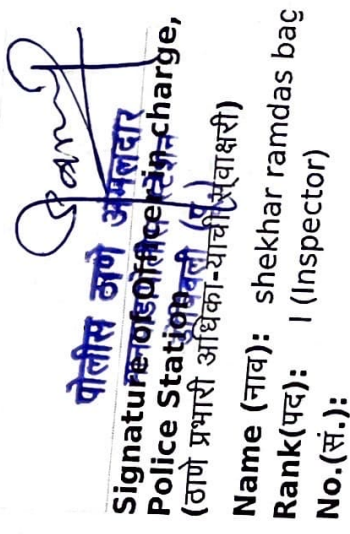 पोलीस ठाणे अंमलदार
Signature of Officer in charge,
Police Station
(ठाणे प्रभारी अधिका-याची स्वाक्षरी)
Name (नाव): shekhar ramdas bag
Rank(पद): I (Inspector)
No.(सं.):